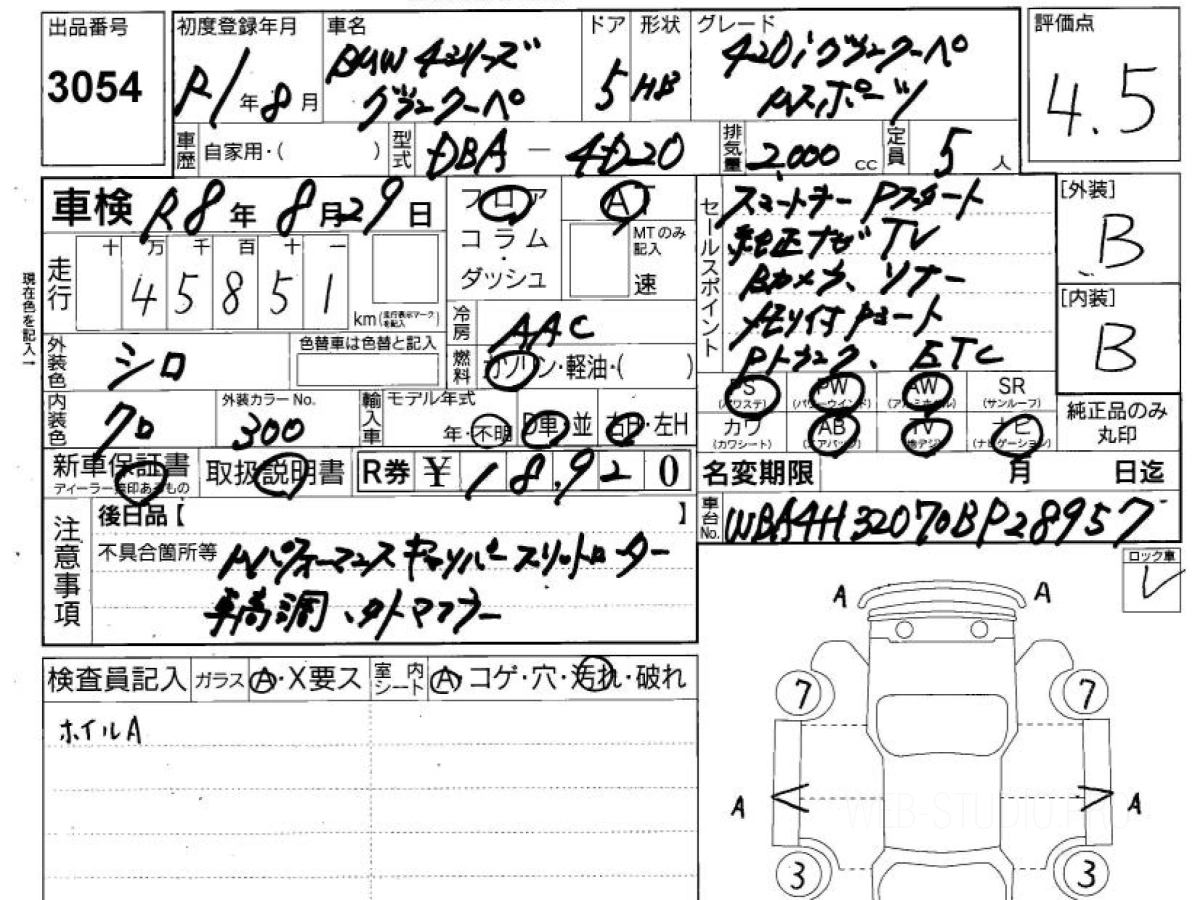 出品番号
3054
初度登録年月
R1年8月
車名
BMW 4シリーズ
グランクーペ
ドア
5
形状
HB
グレード
420iグランクーペ
Mスポーツ
評価点
4.5
車歴
自家用・( )
型式
DBA - 4D20
排気量
2,000 cc
定員
5人
車検 R8年 8月29日
走行
十 万 千 百 十 一
4 5 8 5 1
km(走行表示マークを記入)
現在色を記入→
フロア
コラム
・
ダッシュ
AT
MTのみ記入
速
セールスポイント
スマートキー Pスタート
純正ナビ TV
Bカメラ、ソナー
メモリ付Pシート
Pトランク、ETC
[外装]
B
[内装]
B
外装色
シロ
色替車は色替と記入
冷房
AAC
燃料
ガソリン・軽油・( )
内装色
クロ
外装カラーNo.
300
輸入車
モデル年式
年・不明
D車・並
右H・左H
PS
(パワステ)
PW
(パワーウインド)
AW
(アルミホイル)
SR
(サンルーフ)
カワ
(カワシート)
AB
(エアバッグ)
TV
(地デジ)
ナビ
(ナビゲーション)
純正品のみ
丸印
新車保証書
ディーラー捺印あるもの
取扱説明書
R券 ¥ 18,920
名変期限 月 日迄
注意事項
後日品【 】
不具合箇所等
Mパフォーマンス キャリパー スリットローター
車高調、外マフラー
車台No.
WBA4H32070BP28957
ロック車
レ
検査員記入
ガラス
A・X要ス
室内シート
A・コゲ・穴・汚れ・破れ
ホイルA
A
A
7
7
A
A
3
3
WEB-STUDIO.PRO